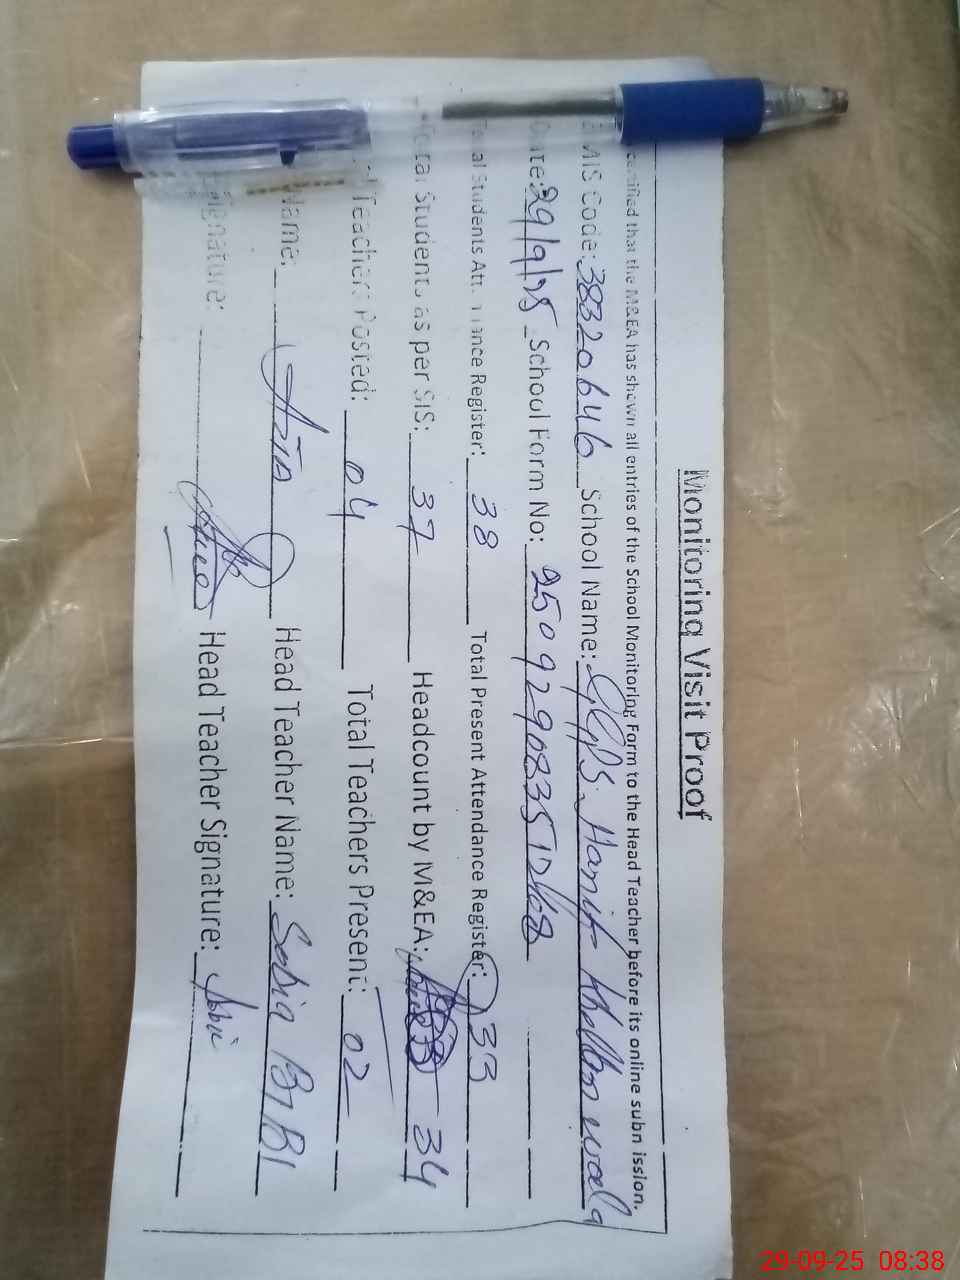 Monitoring Visit Proof
certified that the M&EA has shown all entries of the School Monitoring Form to the Head Teacher before its online submission.
EMIS Code: 38320646 School Name: GGPS. Hanif Khellan wala
Date: 29/9/25 School Form No: 2509290835
Total Students Attendance Register: 38 Total Present Attendance Register: 33
Total Students as per SIS: 37 Headcount by M&EA: 34
Teachers Posted: 04 Total Teachers Present: 02
Name: Head Teacher Name: Sobia BiBi
Signature: Head Teacher Signature:
29-09-25 08:38